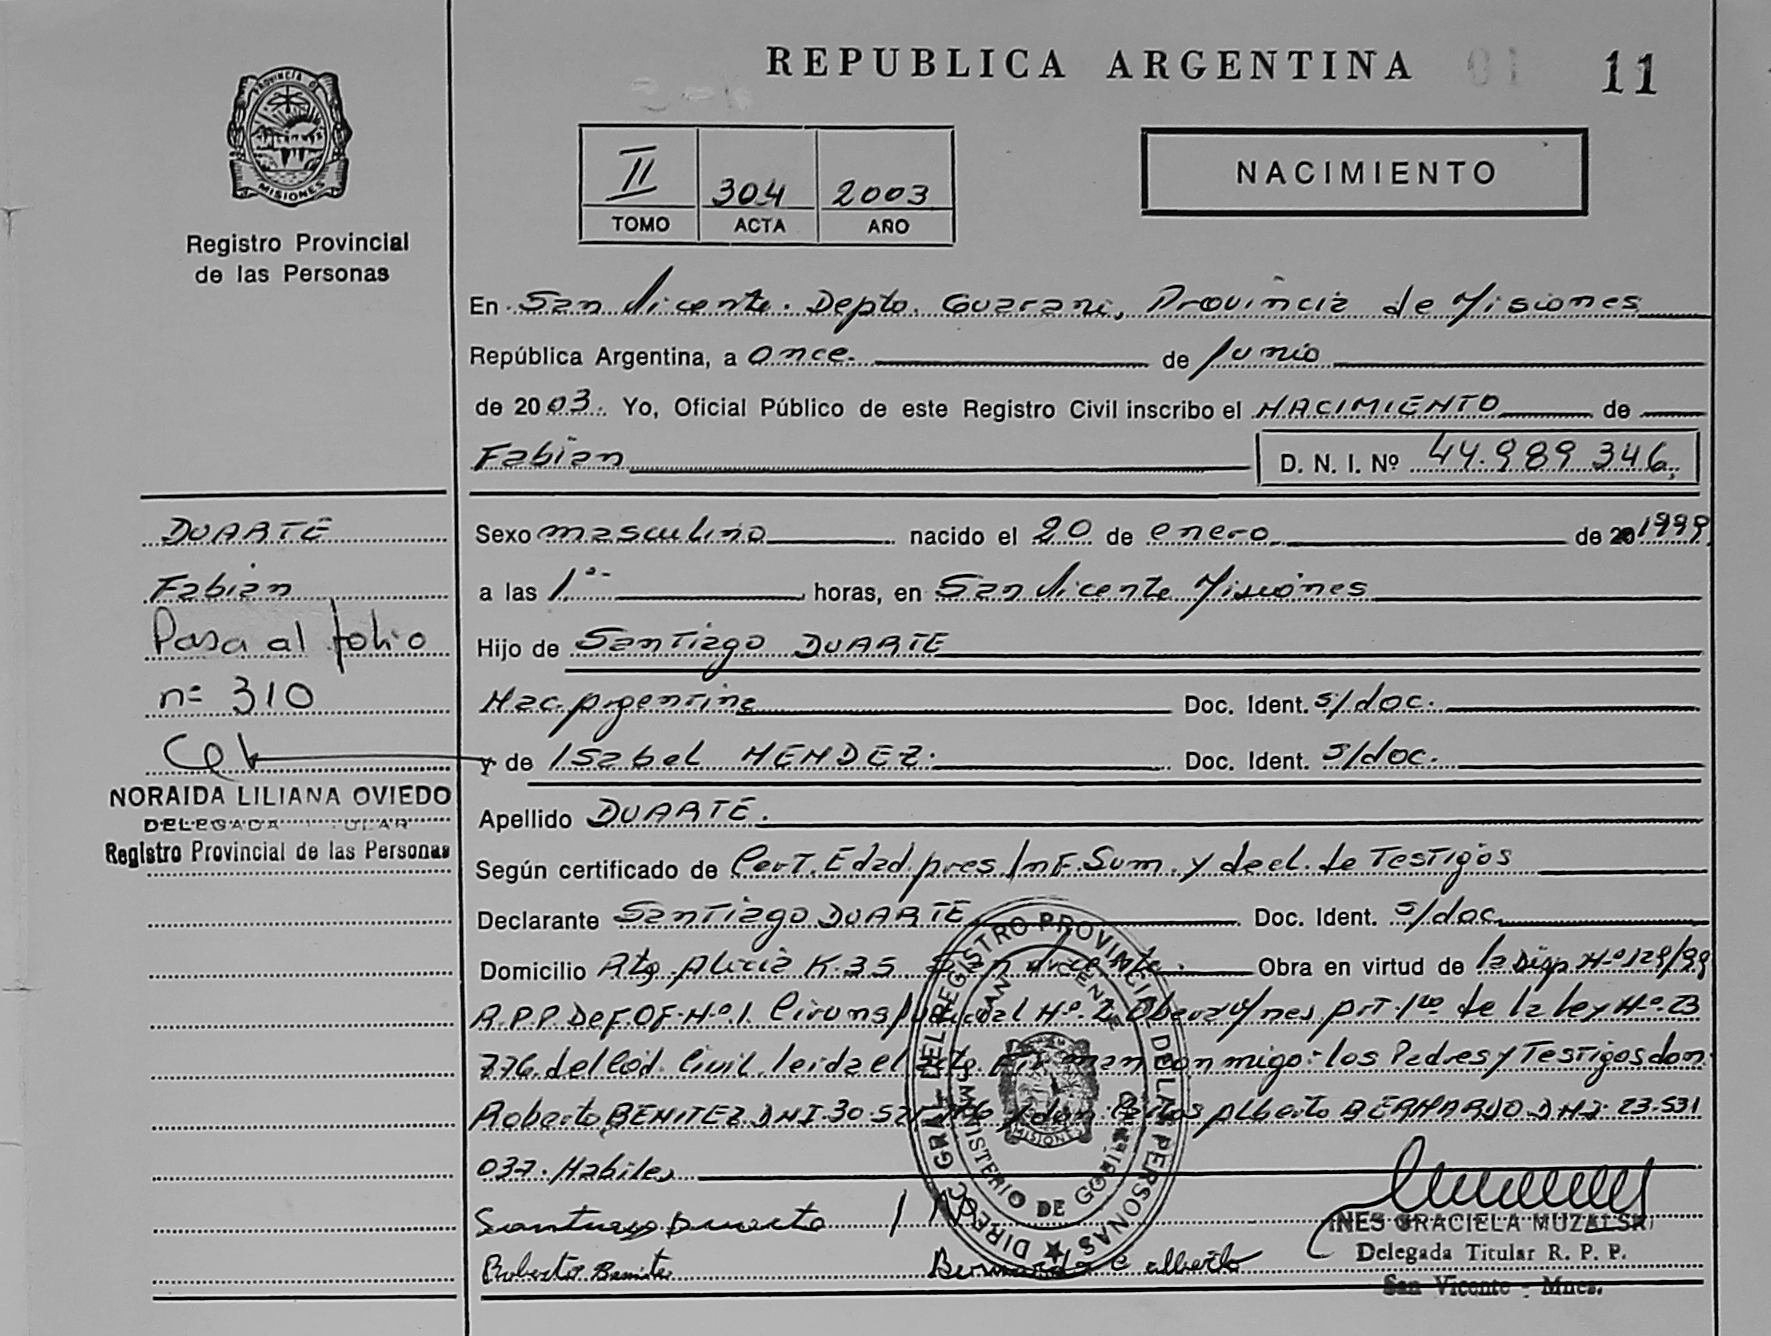 REPUBLICA ARGENTINA 01 11
PROVINCIA DE MISIONES
Registro Provincial
de las Personas
II 304 2003
TOMO ACTA AÑO
NACIMIENTO
En San Vicente. Depto. Guarani, Provincia de Misiones
República Argentina, a once. de Junio
de 2003. Yo, Oficial Público de este Registro Civil inscribo el NACIMIENTO de
Fabian D. N. I. Nº 44.989.346
DUARTE
Fabian
Pasa al folio
nº 310
NORAIDA LILIANA OVIEDO
DELEGADA TITULAR
Registro Provincial de las Personas
Sexo masculino nacido el 20 de enero de 20 1999
a las 1.00 horas, en San Vicente Misiones
Hijo de Santiago DUARTE
Nac. Argentina Doc. Ident. s/doc.
y de Isabel MENDEZ. Doc. Ident. s/doc.
Apellido DUARTE.
Según certificado de Cert. Edad. pres. Inf. Sum. y decl. de Testigos
Declarante Santiago DUARTE Doc. Ident. s/doc
Domicilio Alicia K.35 San Vicente. Obra en virtud de la Disp. Nº 129/99
R.P.P. Def. Of. Nº 1. Judicial Nº 2 Obera Mnes. Art. 1ro de la Ley Nº 23
776. del Cod. Civil. leida el acta firman conmigo: los Padres y Testigos don
Roberto BENITEZ DNI 30.521. y don Carlos Alberto BERNARDO DNI 23.531
037. Habiles
Santiago Duarte
Roberto Benitez
Bernardo C alberto
INES GRACIELA MUZALSKI
Delegada Titular R. P. P.
San Vicente - Mnes.
DIREC. GRAL. DEL REGISTRO PROVINCIAL DE LAS PERSONAS
MINISTERIO DE GOBIERNO
SAN VICENTE
MISIONES